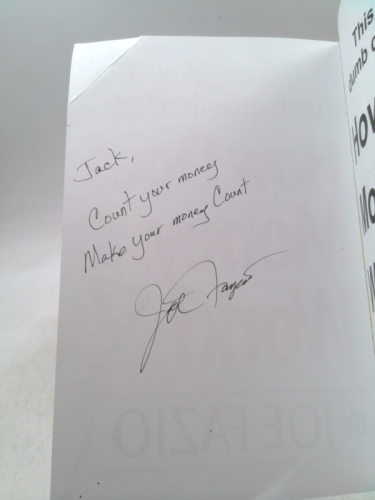 Jack,
Count your money
Make your money Count
Joe Fazio
This
dumb
HOW
JOE FAZIO